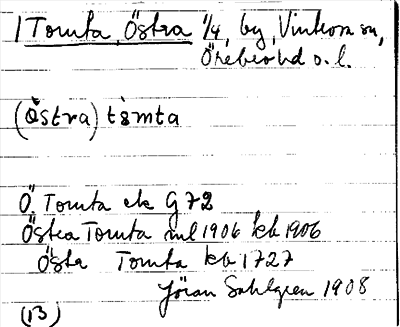 1 Tomta, Östra 1/4, by, Vintrosa sn,
Örebro hd o. l.
(östra) tomta
Ö Tomta ek G 72
Östra Tomta ml 1906 kb 1906
Östa Tomta kb 1727
Jöran Sahlgren 1908
(13)